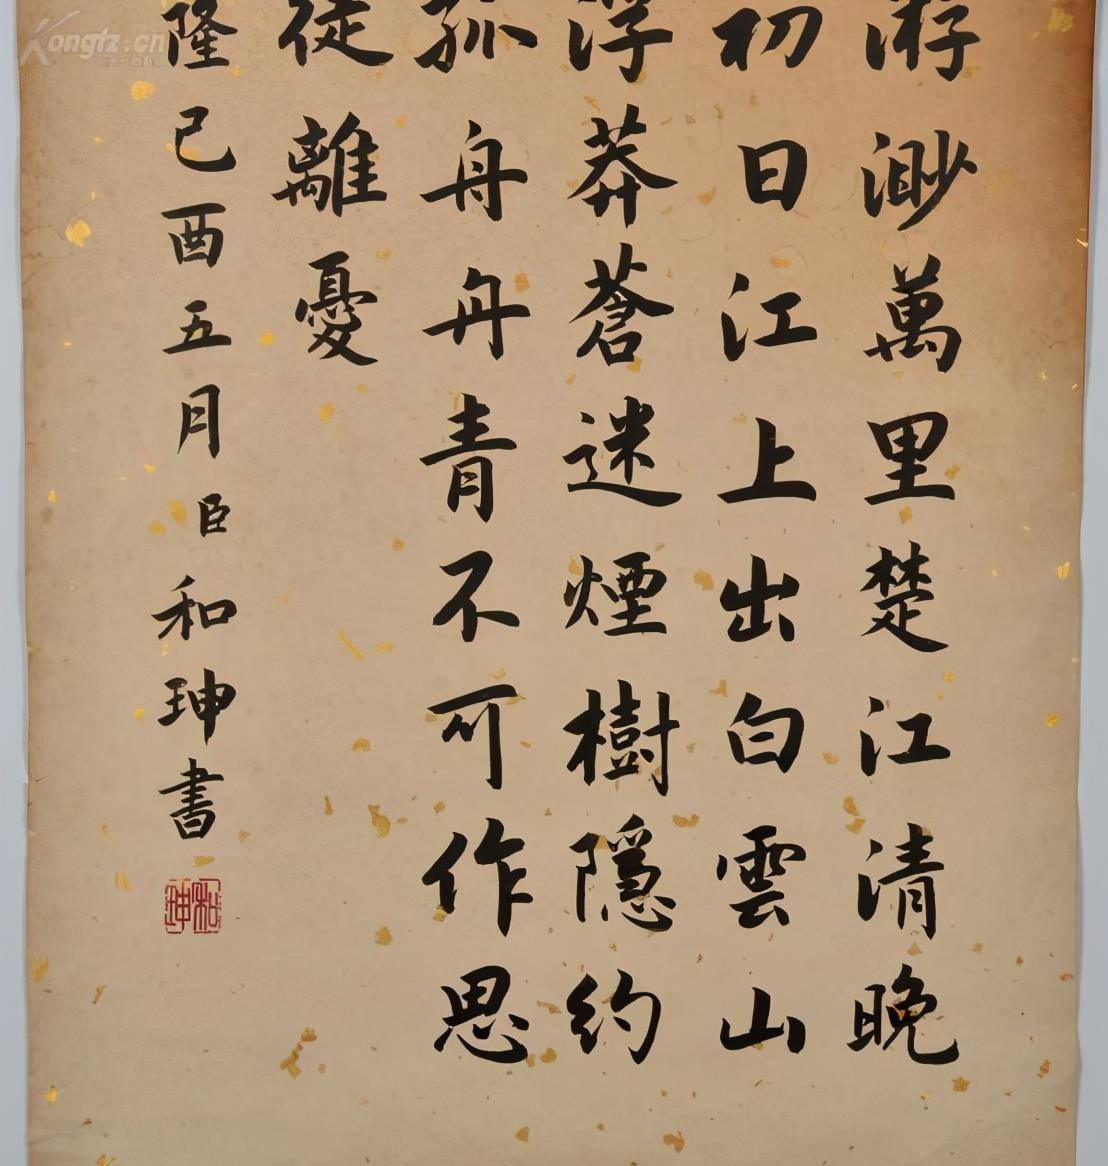 游渺萬里楚江清晚
初日江上出白雲山
浮莽蒼迷煙樹隱約
孤舟舟青不可作思
徒離憂
隆己酉五月臣和珅書
和珅
Kongfz.cn